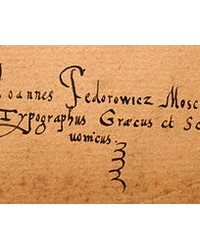 Joannes Fedorowicz Mosc
Typographus Græcus et Sc
uonicus.